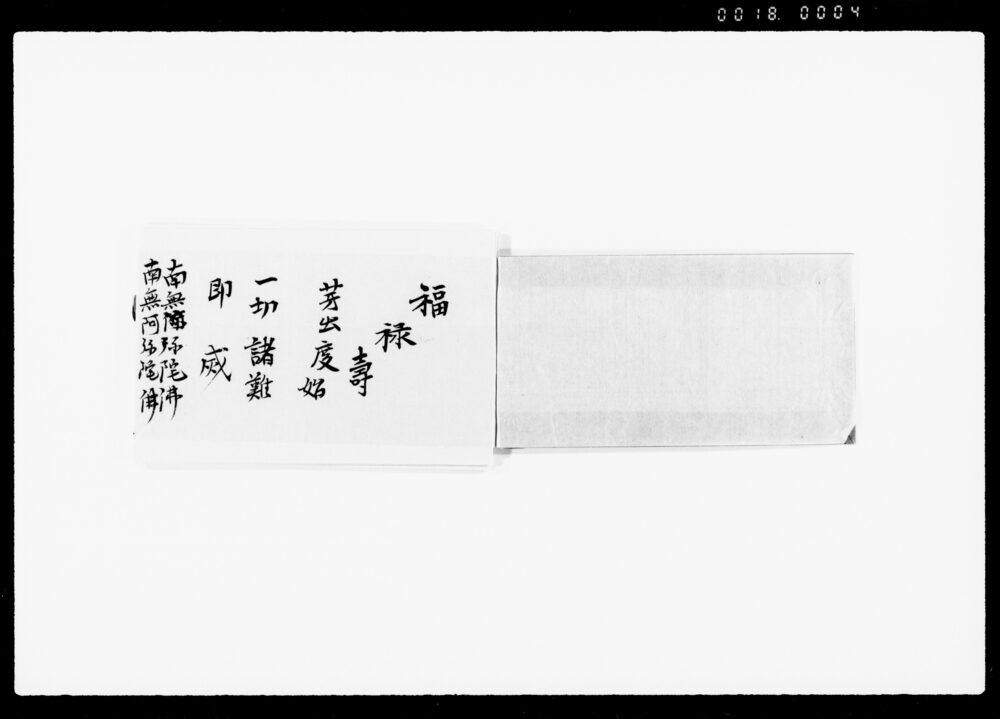 0018. 0004
福
禄
壽
芽出度始
一切諸難
即滅
南無阿弥陀佛
南無阿弥陀佛